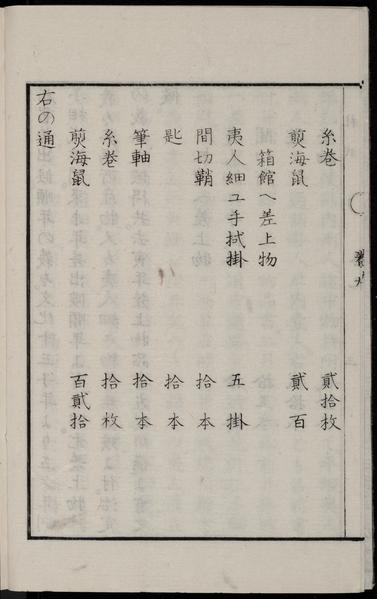 糸巻　貳拾枚
煎海鼠　貳百
箱館へ差上物
夷人細工手拭掛　五掛
間切鞘　拾本
匙　拾本
筆軸　拾本
糸巻　拾枚
煎海鼠　百貳拾
右の通